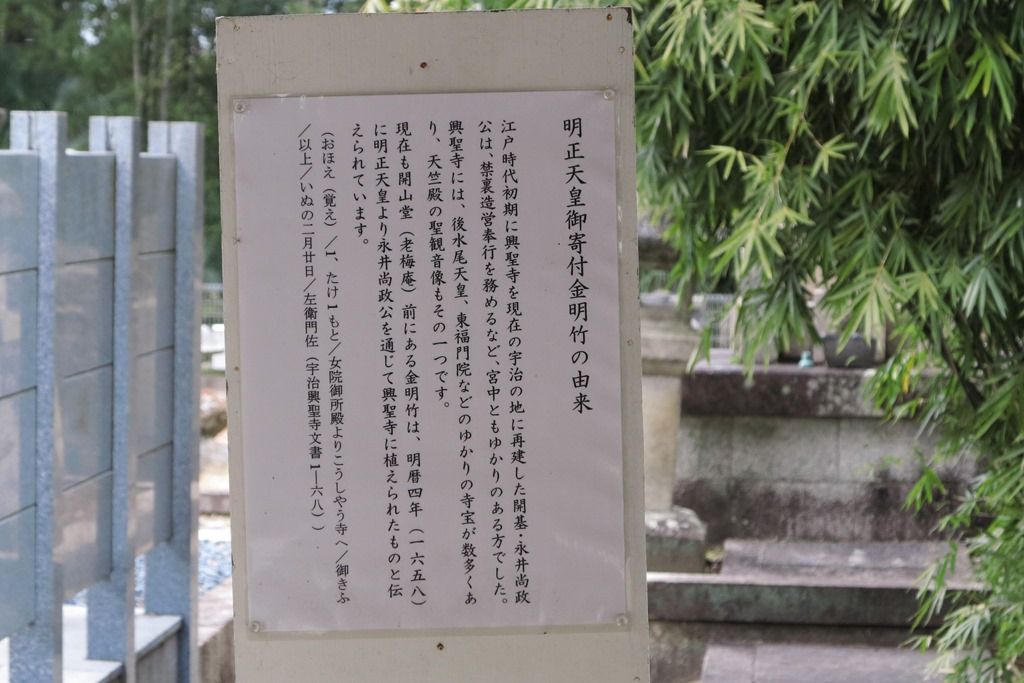 明正天皇御寄付金明竹の由来
江戸時代初期に興聖寺を現在の宇治の地に再建した開基・永井尚政
公は、禁裏造営奉行を務めるなど、宮中ともゆかりのある方でした。
興聖寺には、後水尾天皇、東福門院などのゆかりの寺宝が数多くあ
り、天竺殿の聖観音像もその一つです。
現在も開山堂（老梅庵）前にある金明竹は、明暦四年（一六五八）
に明正天皇より永井尚政公を通じて興聖寺に植えられたものと伝
えられています。
（おほえ（覚え）／1、たけ1もと／女院御所殿よりこうしやう寺へ／御きふ
／以上／いぬの二月廿日／左衛門佐（宇治興聖寺文書1―六八））